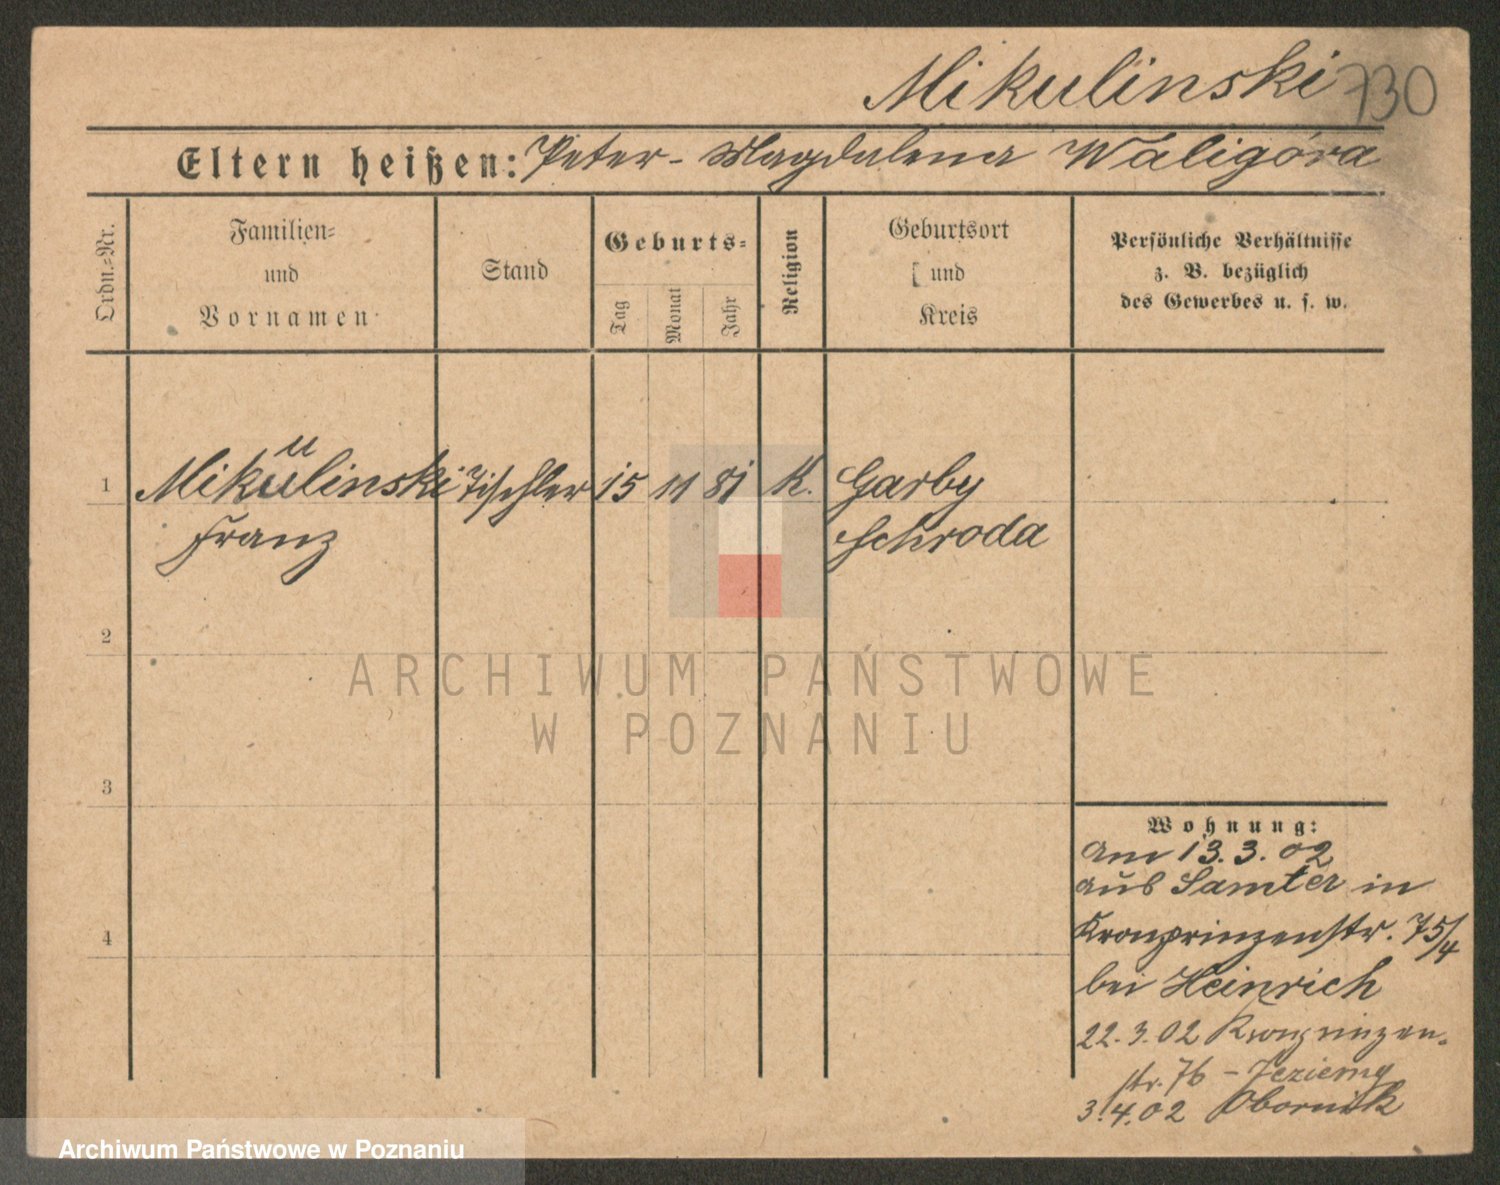 Mikulinski 730
Eltern heißen: Peter - Magdalena Waligóra
Ordn.=Nr.
Familien=
und
Vornamen
Stand
Geburts=
Tag
Monat
Jahr
Religion
Geburtsort
und
Kreis
Persönliche Verhältnisse
z. B. bezüglich
des Gewerbes u. s. w.
u
1 Mikulinski Tischler 15 11 81 K. Garby
Franz Schroda
2
ARCHIWUM PAŃSTWOWE
W POZNANIU
3
Wohnung:
am 13.3.02
aus Samter in
4 Kronprinzenstr. 75/4
bei Heinrich
22.3.02 Kronprinzen-
str. 76 -
3.4.02 Obornik
Archiwum Państwowe w Poznaniu